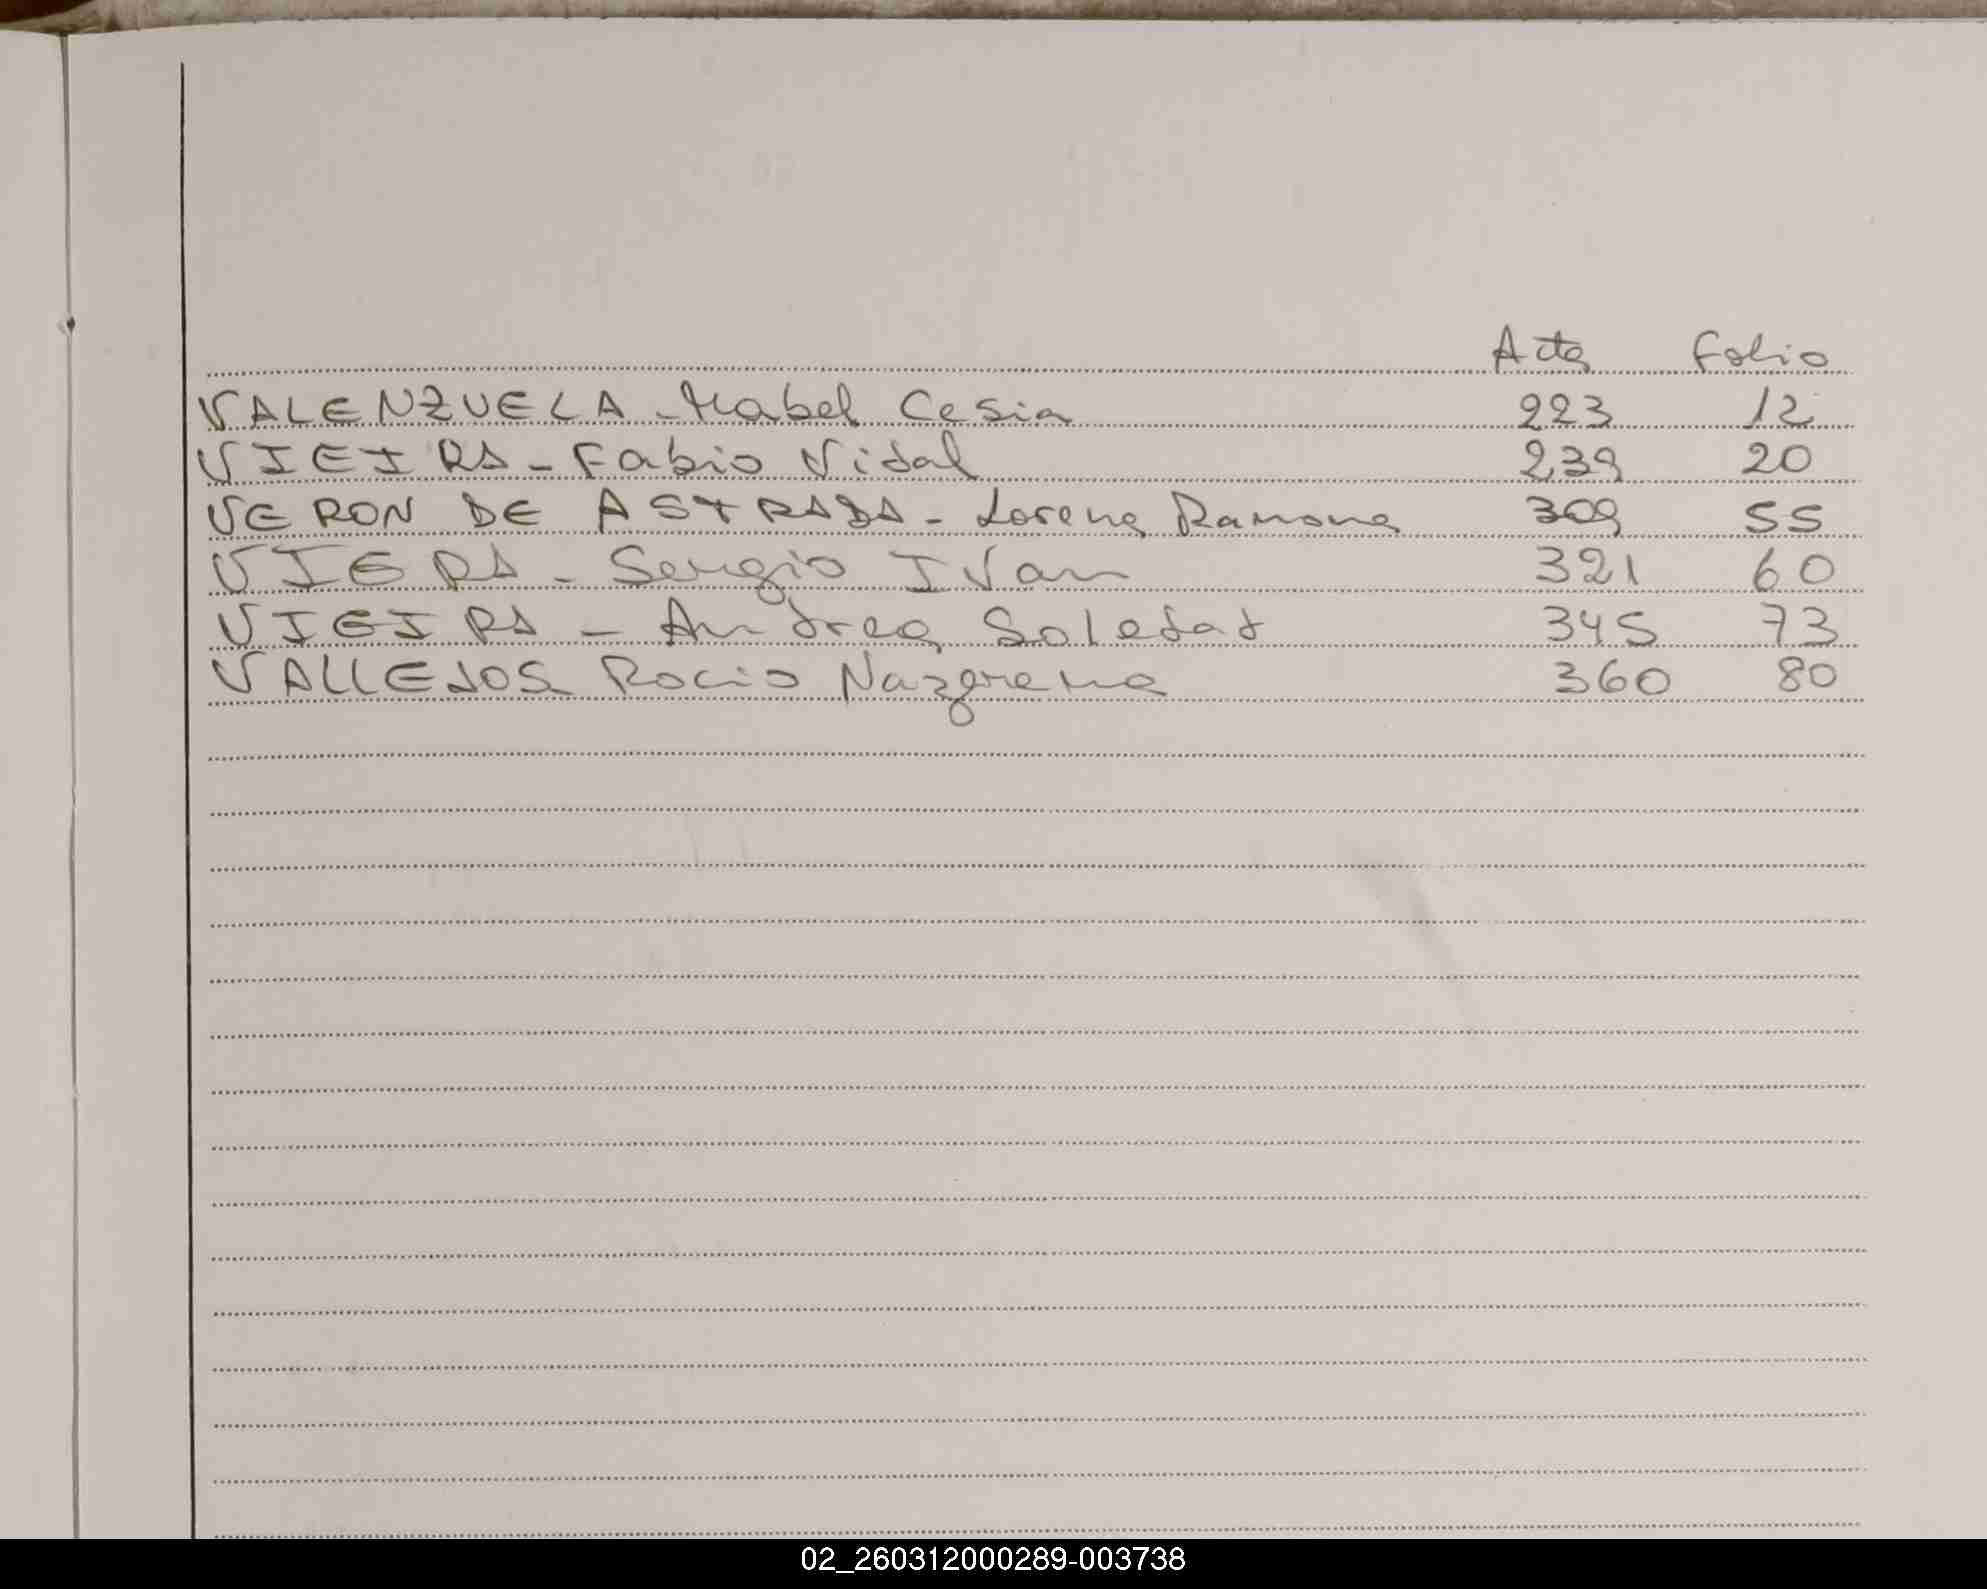 Acta Folio
VALENZUELA - Mabel Cesia 223 12
VIEIRA - Fabio Vidal 239 20
VERON DE ASTRADA - Lorena Ramona 309 55
VIERA - Sergio Ivan 321 60
VIEIRA - Andrea Soledad 345 73
VALLEJOS Rocio Nazarena 360 80
02_260312000289-003738